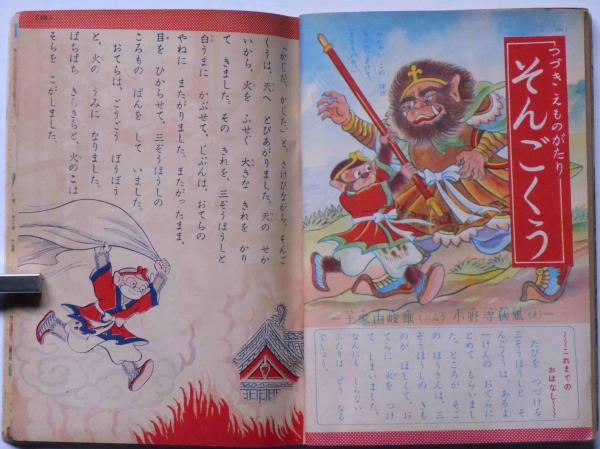 つづきえものがたり
そんごくう
―千葉由岐雄(ぶん) 小野寺秋風(え)―
これまでの
おはなし
たびを つづける
三ぞうほうしと そ
んごくうは、あるよ
一けんの おてらに
とめて もらいまし
た。ところが そこ
の ぼうさんは、三
ぞうほうしの ころも
のが ほしくて、お
てらに 火を つけ
て しまいました。
なんにも しらない
ふたりは どう なる
でしょう。
「かじだ、かじだ」と、さけびながら、そんご
くうは、天へ とびあがりました。天の せか
いから、火を ふせぐ 大きな きれを かり
て きました。その きれを、三ぞうほうしと
白うまに かぶせて、じぶんは、おてらの
やねに またがりました。またがった まま、
目を ひからせて、三ぞうほうしの
ころもの ばんを して いました。
おてらは、ごうごう ぼうぼう
と、火の うみに なりました。
ぱちぱち きらきらと、火のこは
そらを こがしました。